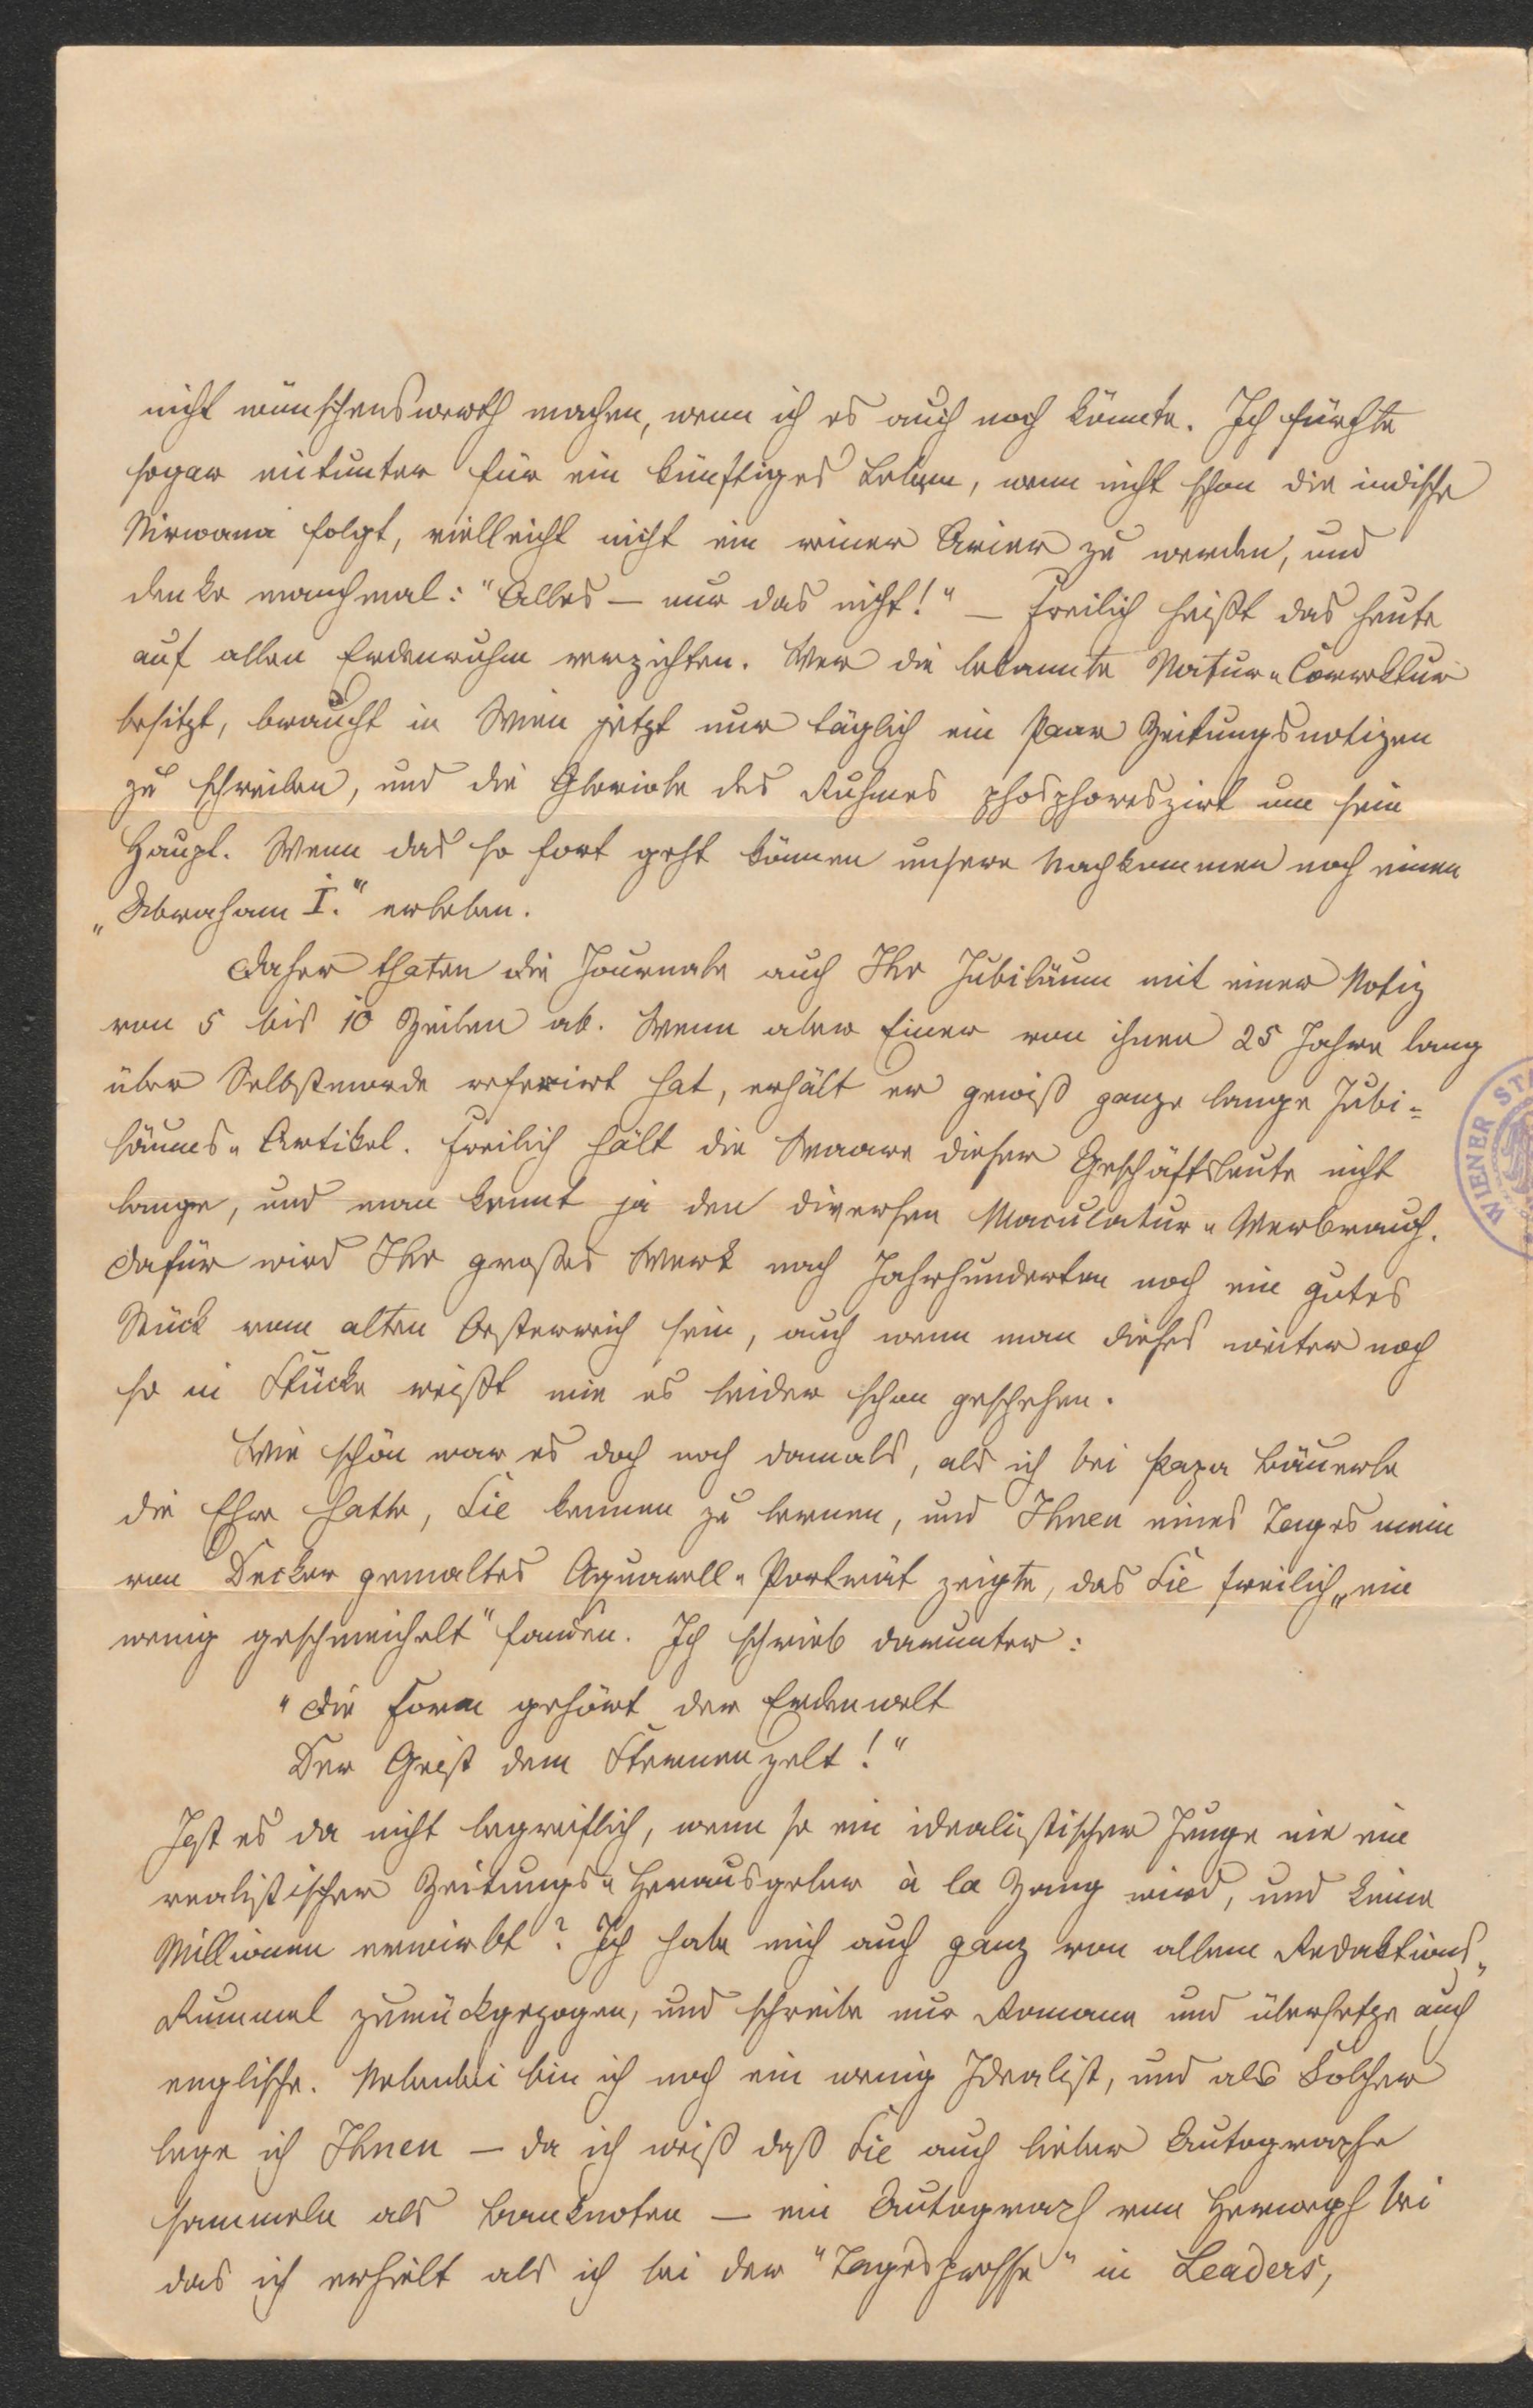 nicht wünschenswerth machen, wenn ich es auch noch könnte. Ich fürchte
sogar mitunter für ein künftiges Leben, wenn nicht schon die indische
Nirwana folgt, vielleicht nicht ein reiner Arier zu werden, und
denke manchmal: "Alles — nur das nicht!" — Freilich heißt das heute
auf allen Erdenruhm verzichten. Wer die bekannte Natur-Correktur
besitzt, braucht in Wien jetzt nur täglich ein Paar Zeitungsnotizen
zu schreiben, und die Gloriole des Ruhmes phosphoreszirt um sein
Haupt. Wenn das so fort geht können unsere Nachkommen noch einen
„Abraham I.“ erleben.
Daher thaten die Journale auch Ihr Jubiläum mit einer Notiz
von 5 bis 10 Zeilen ab. Wenn aber Einer von ihnen 25 Jahre lang
über Selbstmorde referirt hat, erhält er gewiß ganze lange Jubi-
läums-Artikel. Freilich hält die Waare dieser Geschäftsleute nicht
lange, und man kennt ja den diversen Maculatur-Verbrauch.
Dafür wird Ihr großes Werk nach Jahrhunderten noch ein gutes
Stück vom alten Oesterreich sein, auch wenn man dieses weiter noch
so in Stücke reißt wie es leider schon geschehen.
Wie schön war es doch noch damals, als ich bei Papa Bäuerle
die Ehre hatte, Sie kennen zu lernen, und Ihnen eines Tages mein
von Decker gemaltes Aquarell-Porträt zeigte, das Sie freilich „ein
wenig geschmeichelt“ fanden. Ich schrieb darunter:
"Die Form gehört der Erdenwelt
Der Geist dem Sternenzelt!"
Ist es da nicht begreiflich, wenn so ein idealistischer Junge nie ein
realistischer Zeitungs-Herausgeber à la Zang wird, und keine
Millionen erwirbt? Ich habe mich auch ganz von allem Redaktions-
Rummel zurückgezogen, und schreibe nur Romane und übersetze auch
englische. Nebenbei bin ich noch ein wenig Idealist, und als Solcher
lege ich Ihnen — da ich weiß daß Sie auch lieber Autographe
sammeln als Banknoten — ein Autograph von bei
das ich erhielt als ich bei der "Tagespresse" in Leaders,
WIENER ST